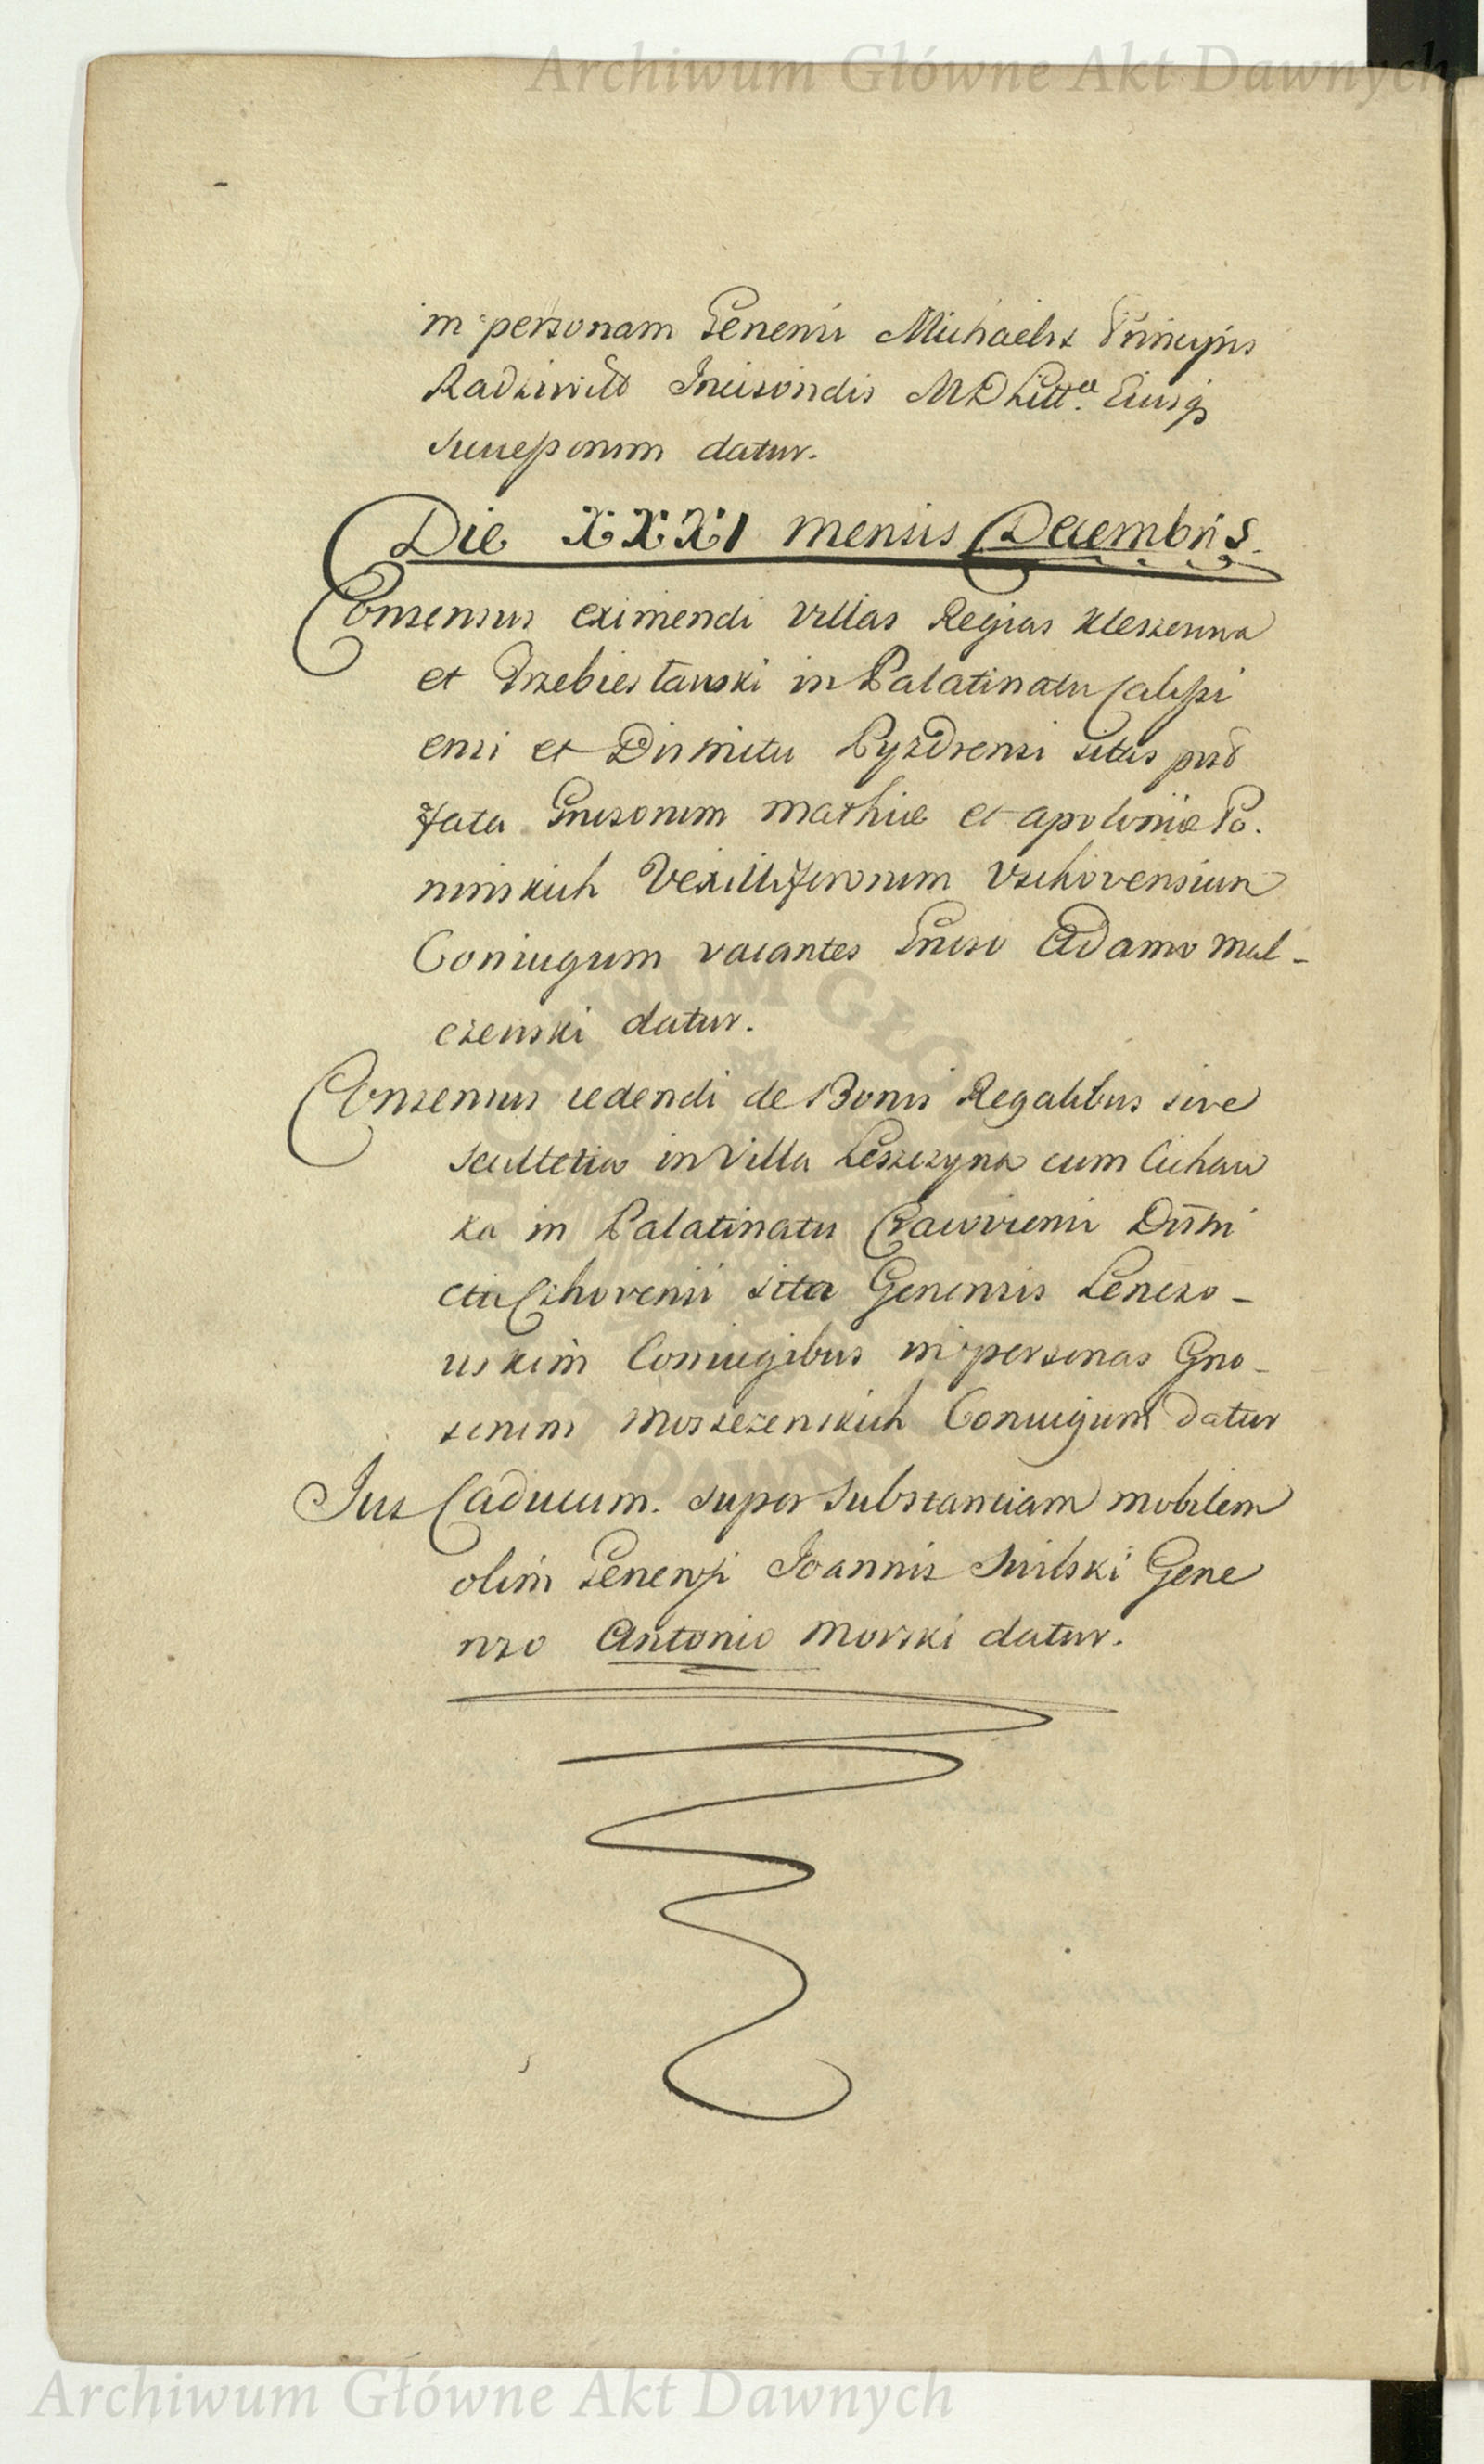 Archiwum Główne Akt Dawnych
in personam Generosi Michaelis Principis
Radziwiłł Incisoridis MDLitt. Eiusq
Successorum datur.
Die XXXI mensis Decembris.
Consensus eximendi villas Regias Kleszczewa
et Trzebiesławki in Palatinatu Calissi
ensi et Districtu Pyzdrensi sitas post
fata Gnrosorum Mathiæ et Apoloniæ Po.
ninskich Vexilliferorum Vschovensium
Coniugum vacantes Gnroso Adamo Mal-
czewski datur.
Consensus cedendi de Bonis Regalibus sive
Scultetia in Villa Leszczyna cum Cichaw
ka in Palatinatu Cracoviensi Distri
ctu Czchoviensi sita Generosis Lenczo-
wskim Coniugibus in personas Gno-
sorum Moszczenskich Coniugum datur
Jus Caducum super Substantiam mobilem
olim Generosi Joannis Gene
roso Antonio Morski datur.
ARCHIWUM GŁÓWNE AKT DAWNYCH
Archiwum Główne Akt Dawnych